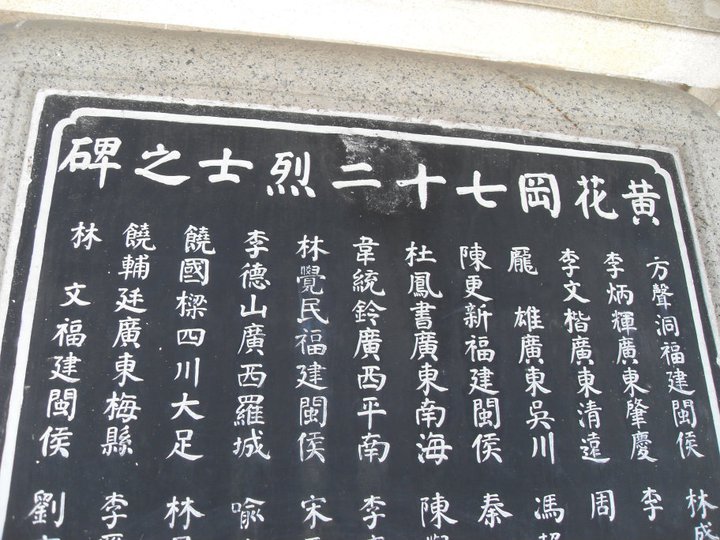 黃花岡七十二烈士之碑
方聲洞福建閩侯
李炳輝廣東肇慶
李文楷廣東清遠
龐雄廣東吳川
陳更新福建閩侯
杜鳳書廣東南海
韋統鈴廣西平南
林覺民福建閩侯
李德山廣西羅城
饒國樑四川大足
饒輔廷廣東梅縣
林文福建閩侯
林
李
周
馮
秦
陳
李
宋
喻
林
李
劉